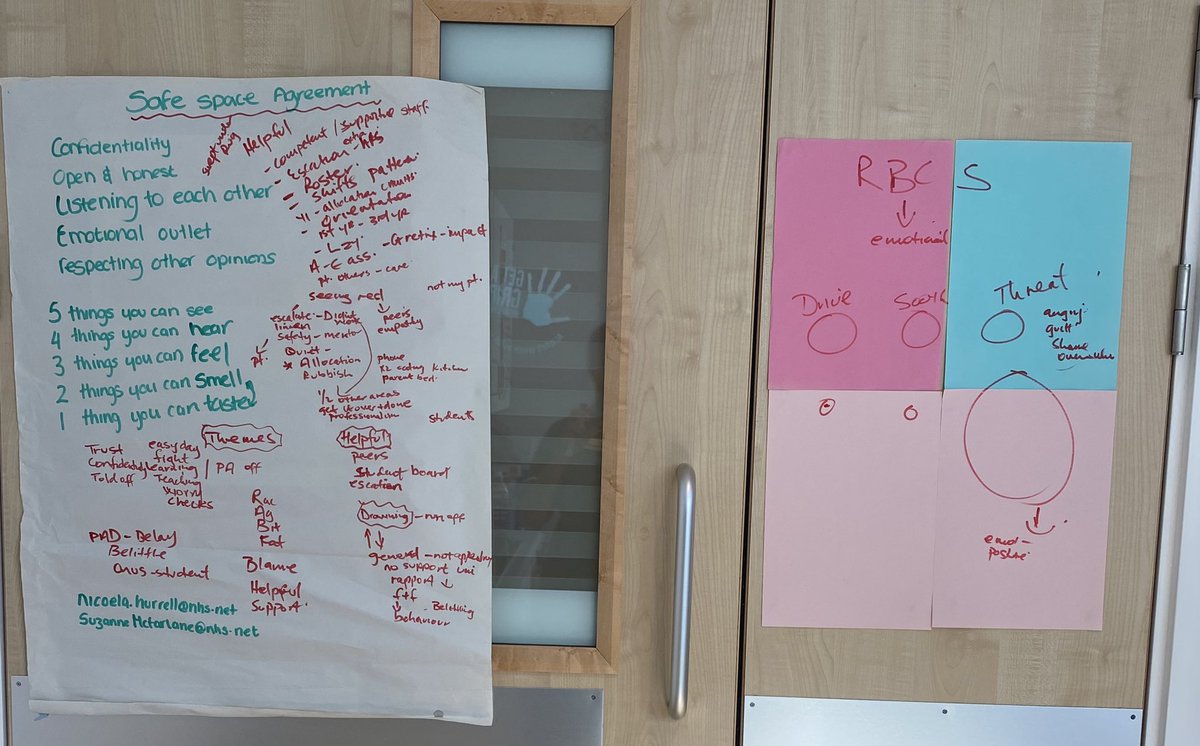 Safe space Agreement
Confidentiality
Open & honest
Listening to each other
Emotional outlet
respecting other opinions
5 things you can see
4 things you can hear
3 things you can feel
2 things you can smell
1 thing you can taste
Helpful
- Competent / supportive staff
- Escation
- Roster
- Shifts pattern
- allocation
- orientation
1st yr - 3rd yr
A-E ass.
pt. others - care
not my pt.
seeing red
escalate -
peers
empathy
Safety -
pt.
Quiet -
* Allocation
Rubbish
phone
kitchen
parent bed.
1/2 other areas
get it over + done
professionalism
students
Themes
Trust
Confidentiality
Told off
easy day
fight
Learning
Teaching
worry
checks
PA off
Rac
Ag
Bit
Fat
Blame
Helpful
Support
PAD - Delay
Belittle
Onus - student
Helpful
peers
Student board
escation
Drowning - run off
general -
no support uni
rapport
f+f
behaviour
nicoela.hurrell@nhs.net
Suzanne.Mcfarlane@nhs.net
RBC S
emotional
Drive
Threat
angry
guilt
Shame
emot-
positive